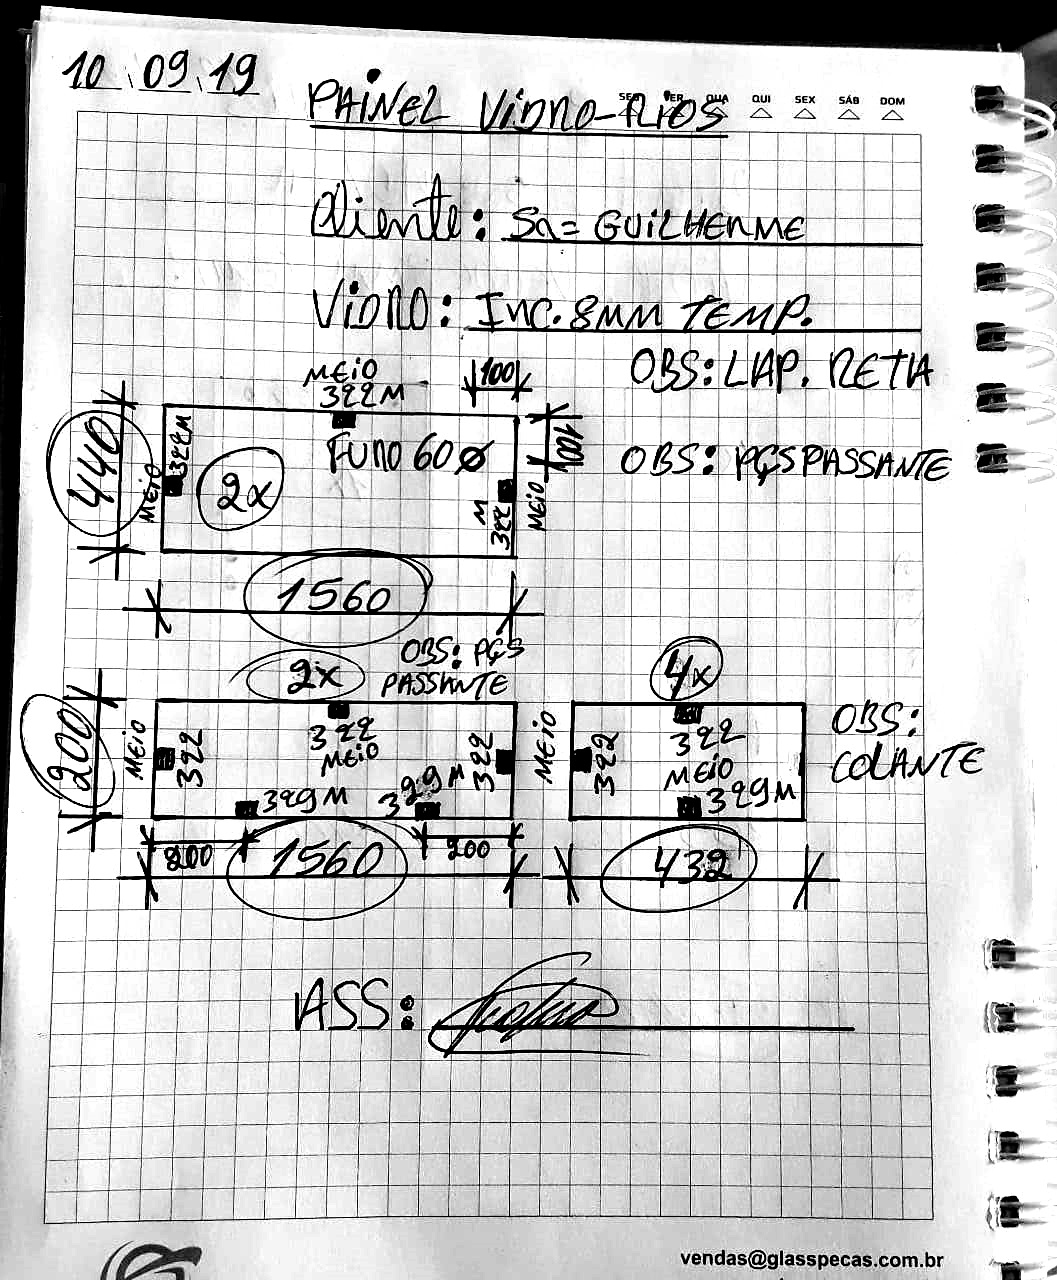 10.09.19
SEG TER QUA QUI SEX SÁB DOM
PAINEL VIDRO-RIOS
Cliente: Sr= GUILHERME
VIDRO: INC. 8MM TEMP.
OBS: LAP. RETA
MEIO
322M
100
440
MEIO
322M
FURO 60 Ø
2x
100
OBS: PÇS PASSANTE
M
322
MEIO
1560
OBS: PÇS
PASSANTE
2x
4x
200
MEIO
322
322
MEIO
322
MEIO
322
322
MEIO
OBS:
COLANTE
329M
329M
329M
200
1560
200
432
ASS:
vendas@glasspecas.com.br